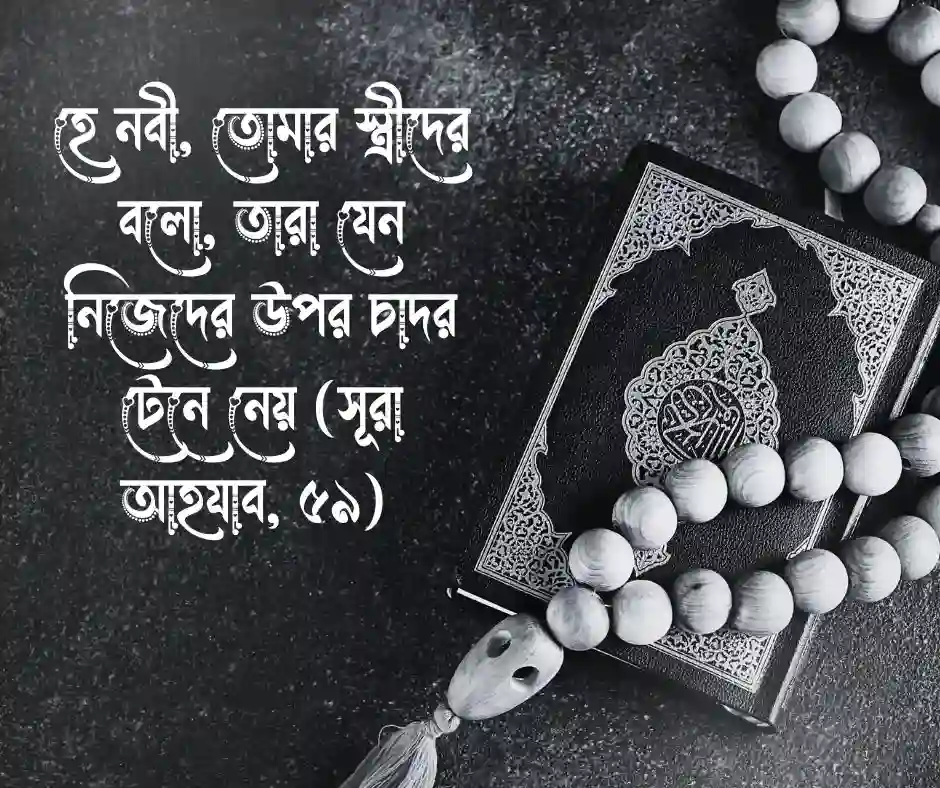 হে নবী, তোমার স্ত্রীদের
বলো, তারা যেন
নিজেদের উপর চাদর
টেনে নেয় (সূরা
আহযাব, ৫৯)